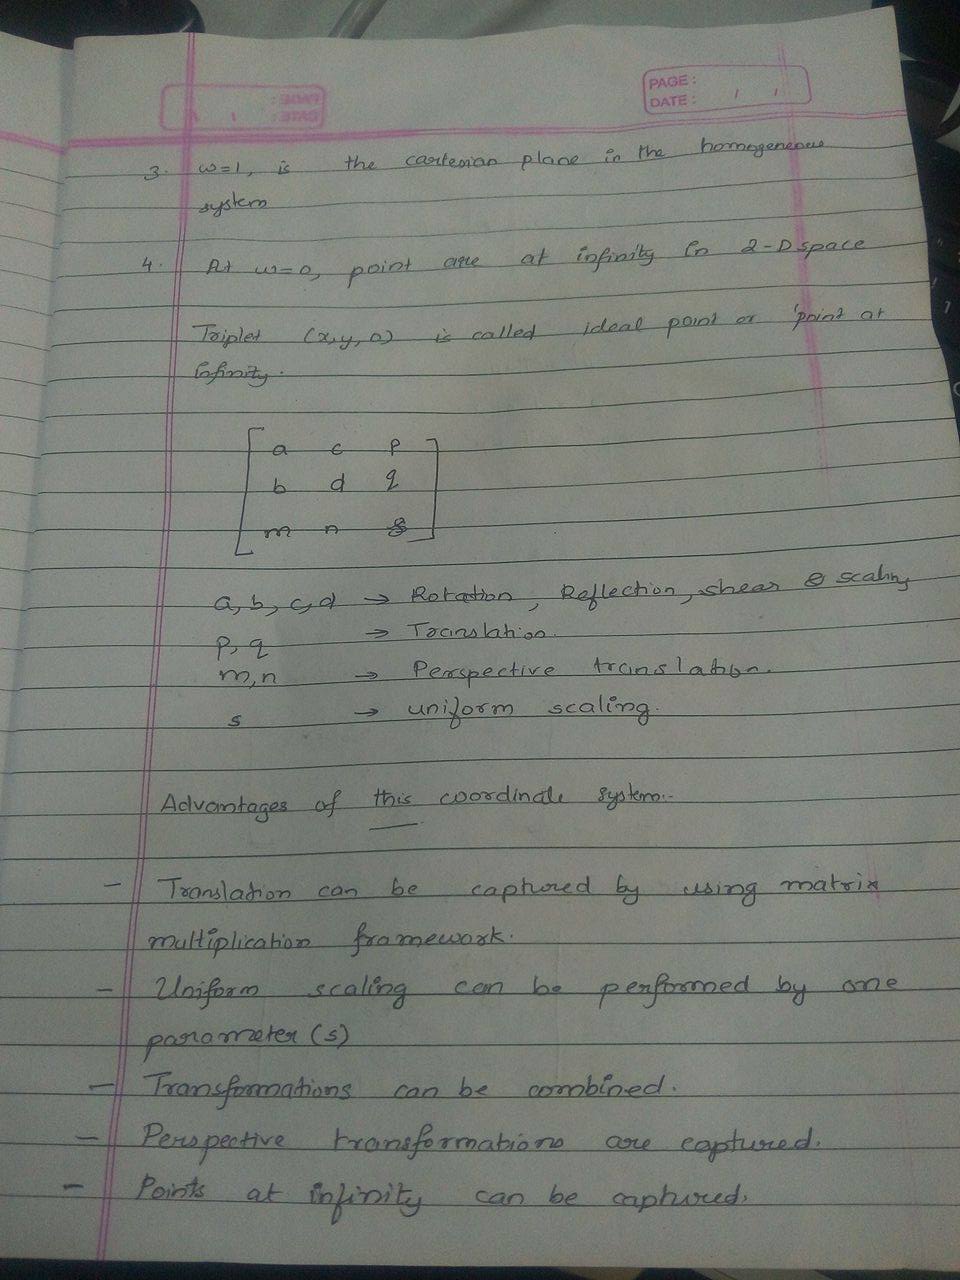 PAGE:
DATE: / /
3. w=1, is the cartesian plane in the homogeneous
system
4. At w=0, point are at infinity in 2-D space
Triplet (x,y,0) is called ideal point or 'point at
infinity.
a c p
b d q
m n s
a, b, c, d → Rotation, Reflection, shear & scaling
p, q → Translation.
m,n → Perspective translation.
s → uniform scaling.
Advantages of this coordinate system:-
- Translation can be captured by using matrix
multiplication framework.
- Uniform scaling can be performed by one
parameter (s)
- Transformations can be combined.
- Perspective transformations are captured.
- Points at infinity can be captured.